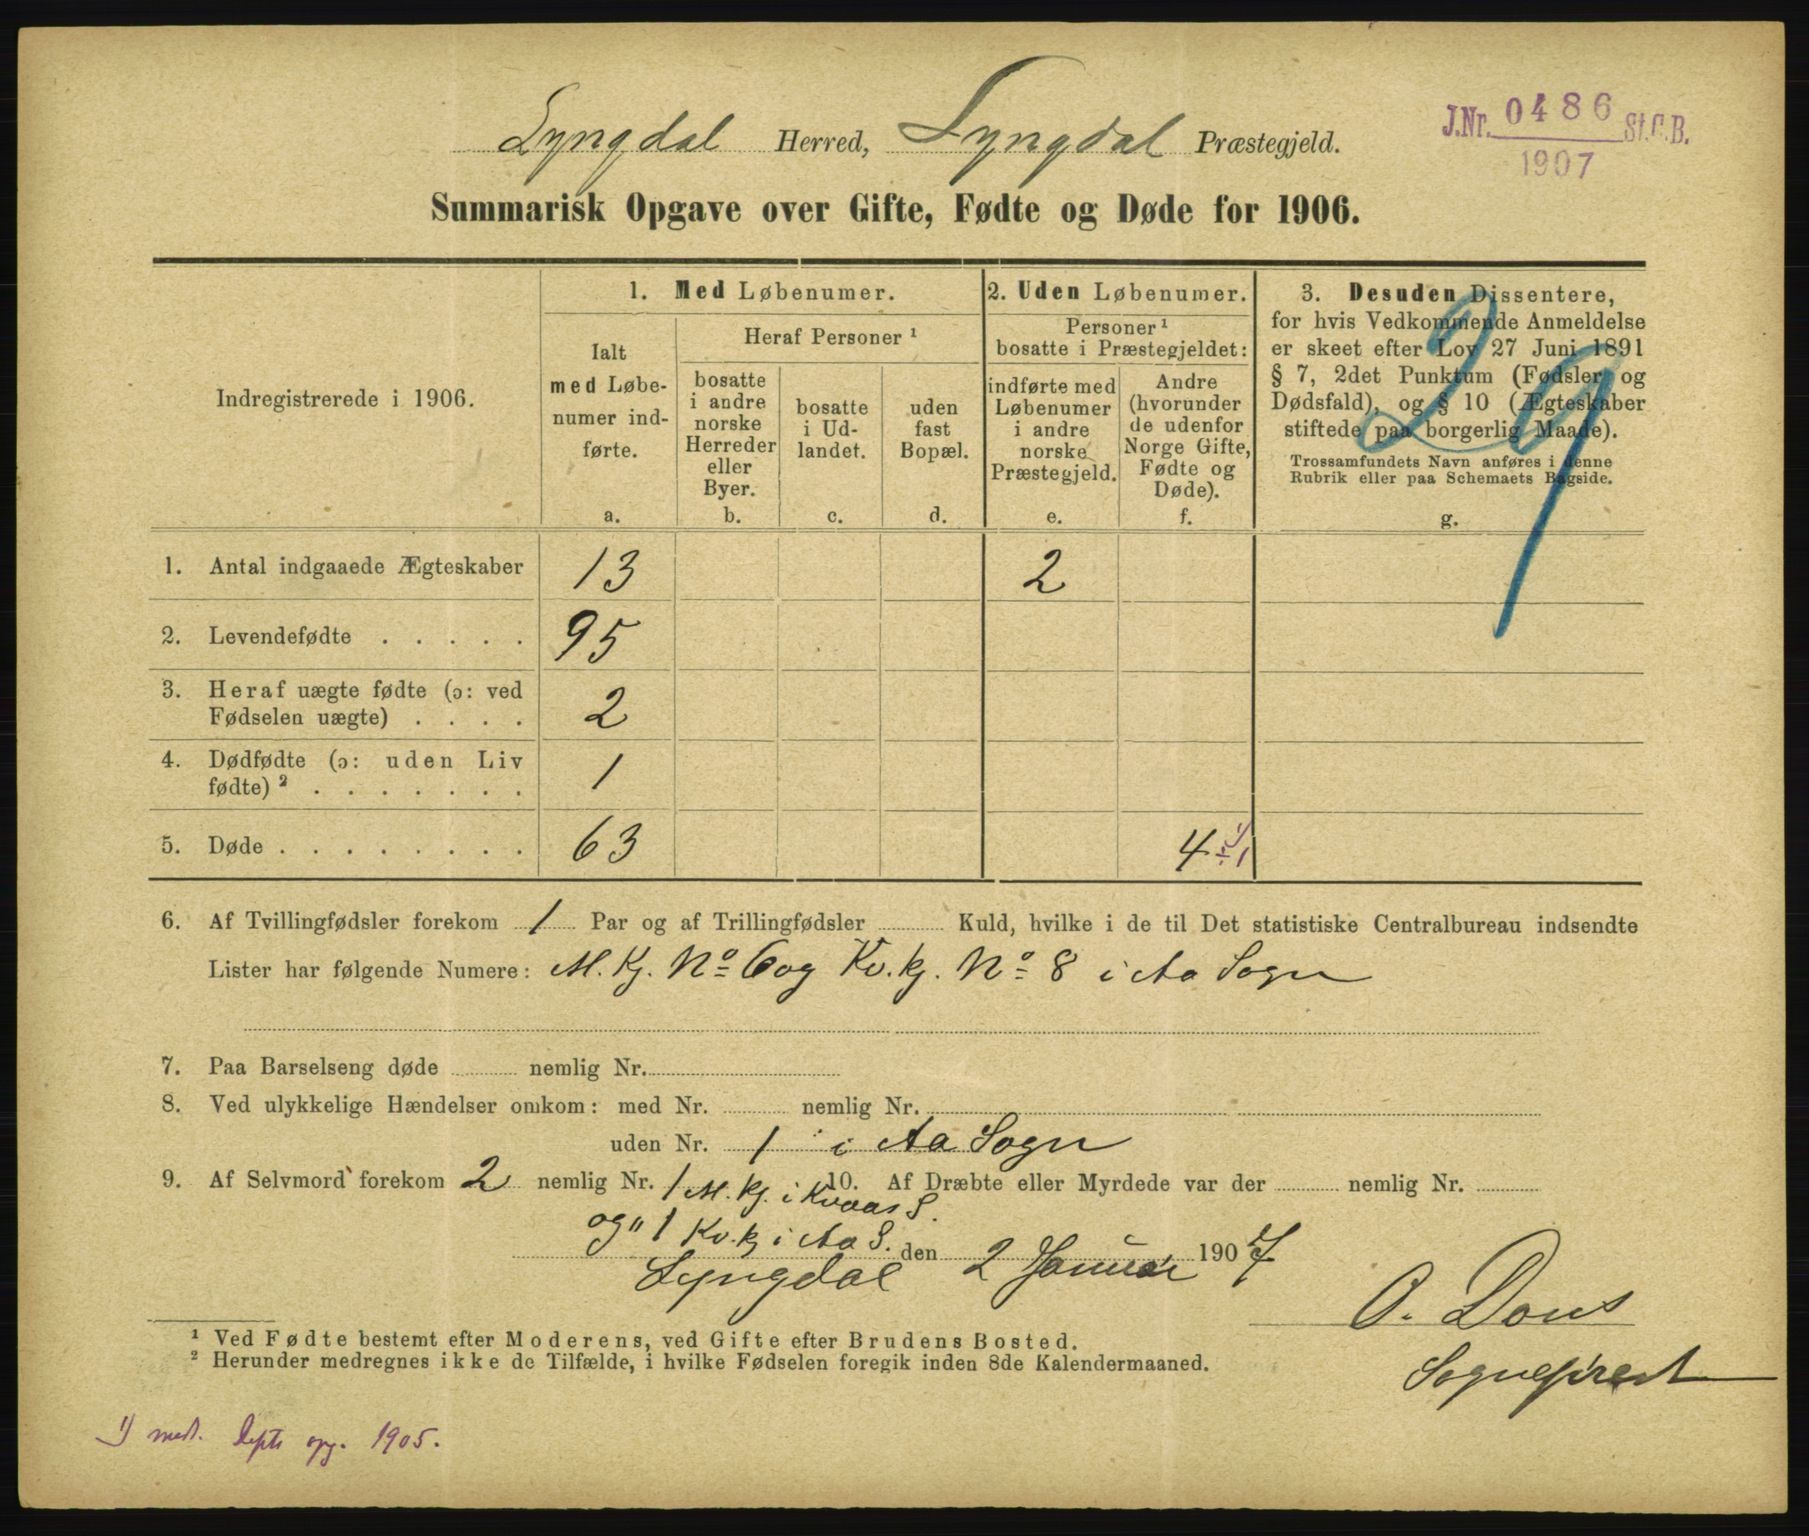 Lyngdal Herred, Lyngdal Præstegjeld.
J.Nr. 0486 St.C.B.
1907
Summarisk Opgave over Gifte, Fødte og Døde for 1906.
Indregistrerede i 1906.
1. Med Løbenumer.
Ialt
med Løbe-
numer ind-
førte.
a.
Heraf Personer ¹
bosatte
i andre
norske
Herreder
eller
Byer.
b.
bosatte
i Ud-
landet.
c.
uden
fast
Bopæl.
d.
2. Uden Løbenumer.
Personer ¹
bosatte i Præstegjeldet:
indførte med
Løbenumer
i andre
norske
Præstegjeld.
e.
Andre
(hvorunder
de udenfor
Norge Gifte,
Fødte og
Døde).
f.
3. Desuden Dissentere,
for hvis Vedkommende Anmeldelse
er skeet efter Lov 27 Juni 1891
§ 7, 2det Punktum (Fødsler og
Dødsfald), og § 10 (Ægteskaber
stiftede paa borgerlig Maade).
Trossamfundets Navn anføres i denne
Rubrik eller paa Schemaets Bagside.
g.
29
1. Antal indgaaede Ægteskaber 13 2
2. Levendefødte . . . . . 95
3. Heraf uægte fødte (ɔ: ved
Fødselen uægte) . . . . 2
4. Dødfødte (ɔ: uden Liv
fødte) ² . . . . . . . 1
5. Døde . . . . . . . . 63 4 ÷1 ¹⁾
6. Af Tvillingfødsler forekom 1 Par og af Trillingfødsler Kuld, hvilke i de til Det statistiske Centralbureau indsendte
Lister har følgende Numere: M. Kj. No 6 og Kv. kj. No 8 i Aa Sogn
7. Paa Barselseng døde nemlig Nr.
8. Ved ulykkelige Hændelser omkom: med Nr. nemlig Nr.
uden Nr. 1 i Aa Sogn
9. Af Selvmord forekom 2 nemlig Nr. 1 M. kj. i Kvaas S. 10. Af Dræbte eller Myrdede var der nemlig Nr.
og " 1 Kv. kj i Aa S.
Lyngdal den 2 Januar 1907
O. Dons
Sogneprest
¹ Ved Fødte bestemt efter Moderens, ved Gifte efter Brudens Bosted.
² Herunder medregnes ikke de Tilfælde, i hvilke Fødselen foregik inden 8de Kalendermaaned.
1) medt. Depts opg. 1905.